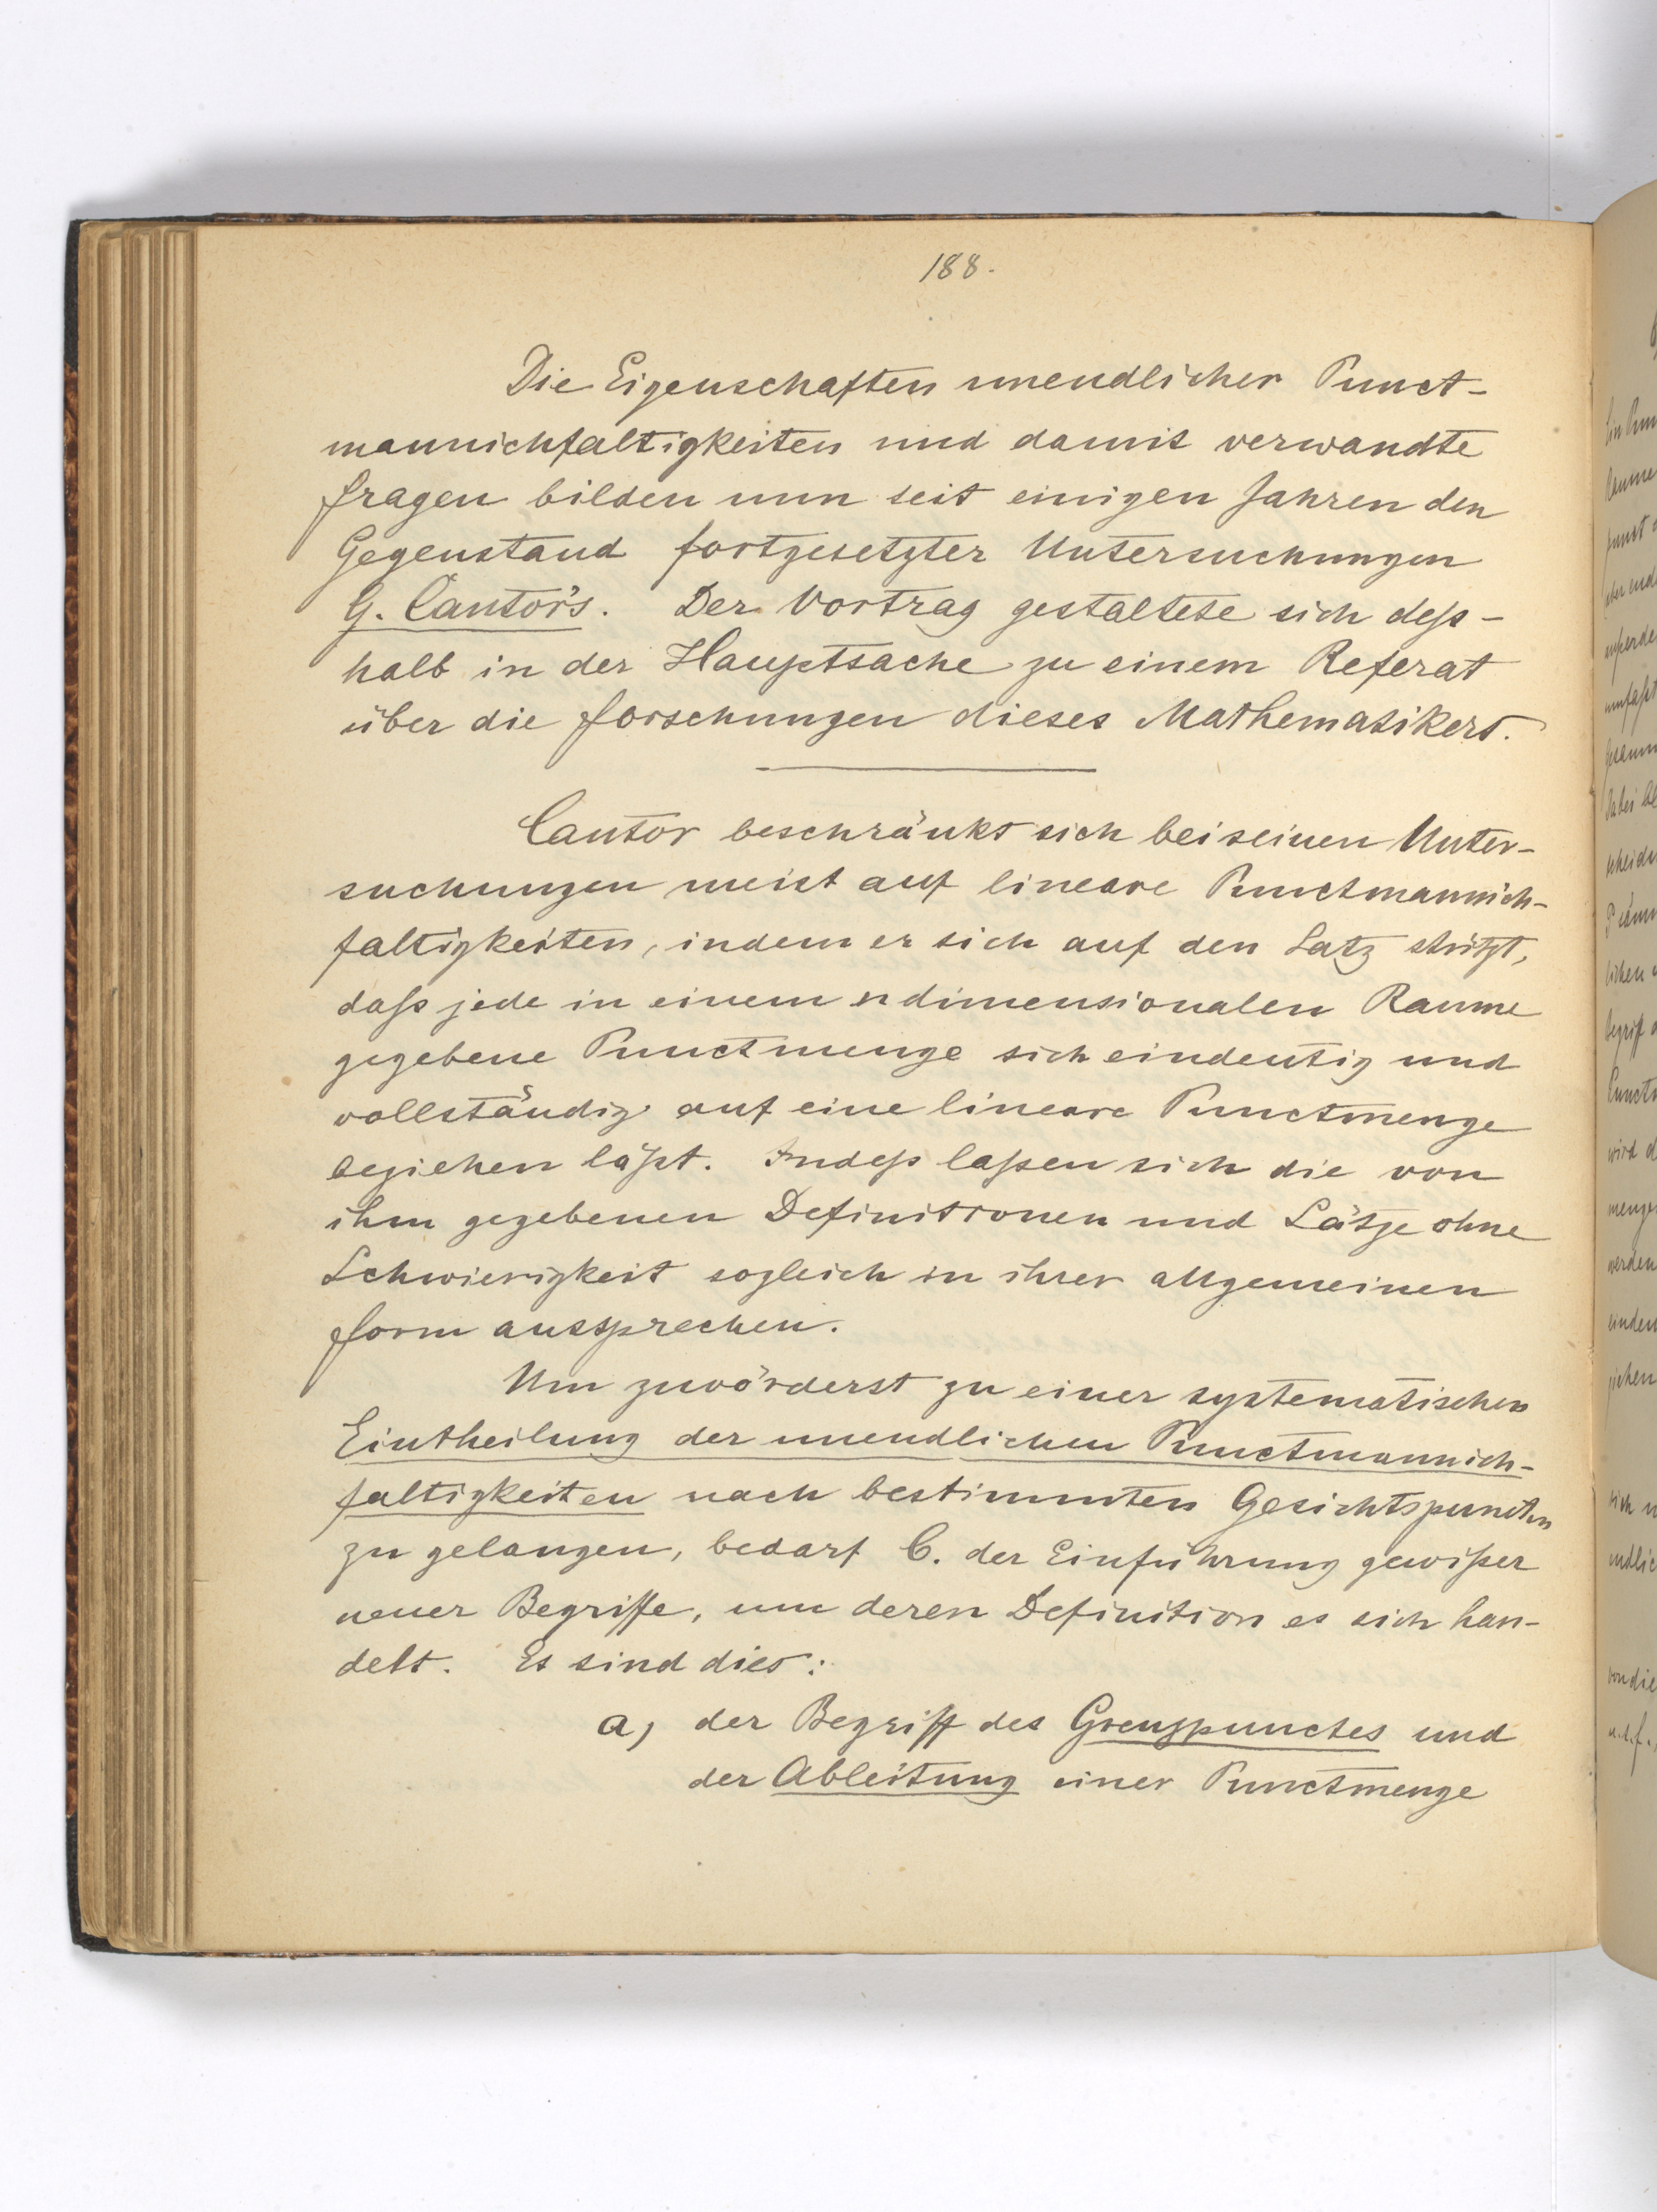 188.
Die Eigenschaften unendlicher Punct-
mannichfaltigkeiten und damit verwandte
Fragen bilden nun seit einigen Jahren den
Gegenstand fortgesetzter Untersuchungen
G. Cantor's. Der Vortrag gestaltete sich deß-
halb in der Hauptsache zu einem Referat
über die Forschungen dieses Mathematikers.
Cantor beschränkt sich bei seinen Unter-
suchungen meist auf lineare Punctmannich-
faltigkeiten, indem er sich auf den Satz stützt,
daß jede in einem n dimensionalen Raume
gegebene Punctmenge sich eindeutig und
vollständig auf eine lineare Punctmenge
beziehen läßt. Indeß laßen sich die von
ihm gegebenen Definitionen und Sätze ohne
Schwierigkeit sogleich in ihrer allgemeinen
Form aussprechen.
Um zuvörderst zu einer systematischen
Eintheilung der unendlichen Punctmannich-
faltigkeiten nach bestimmten Gesichtspuncten
zu gelangen, bedarf C. der Einführung gewißer
neuer Begriffe, um deren Definition es sich han-
delt. Es sind dies:
a, der Begriff des Grenzpunctes und
der Ableitung einer Punctmenge